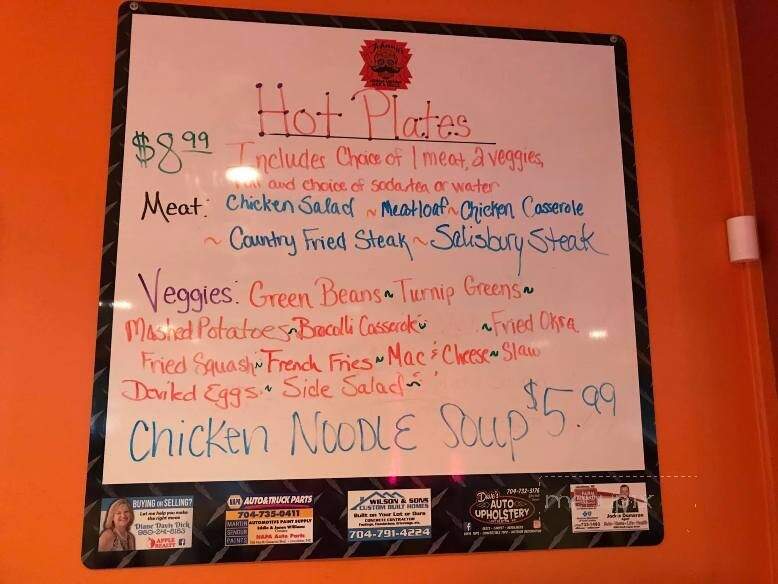 Hot Plates
$8.99 Includes Choice of 1 meat, 2 veggies,
and choice of soda, tea or water
Meat: Chicken Salad ~ Meatloaf ~ Chicken Casserole
~ Country Fried Steak ~ Salisbury Steak
Veggies: Green Beans ~ Turnip Greens ~
Mashed Potatoes ~ Brocolli Casserole ~ Fried Okra
Fried Squash ~ French Fries ~ Mac & Cheese ~ Slaw
Deviled Eggs ~ Side Salad ~
Chicken Noodle Soup $5.99
BUYING or SELLING?
Let me help you make
the right move!
Diane Davis Dick
APPLE
REALTY
NAPA AUTO & TRUCK PARTS
704-735-0411
MARTIN
SENOUR
PAINTS
AUTOMOTIVE PAINT SUPPLY
NAPA Auto Parts
WILSON & SONS
CUSTOM BUILT HOMES
Built on Your Lot or Ours
CONCRETE CONTRACTOR
704-791-4224
Dave's 704-732-5176
AUTO
UPHOLSTERY